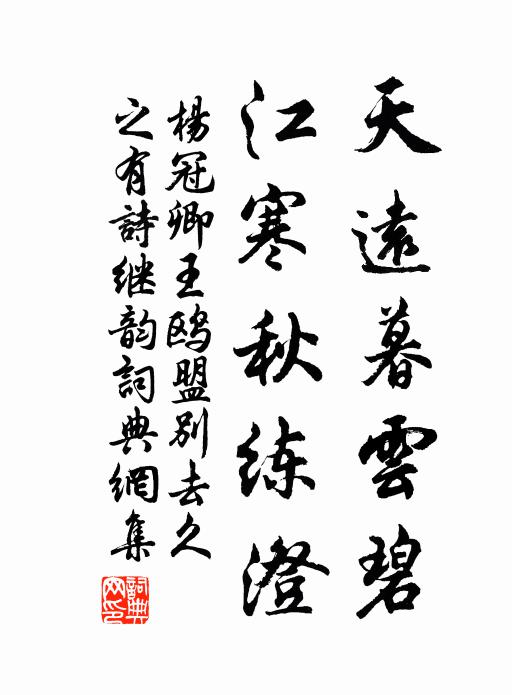 天遠暮雲碧
江寒秋练澄
楊冠卿王鸥盟别去久
之有詩继韵詞典網集
詞典